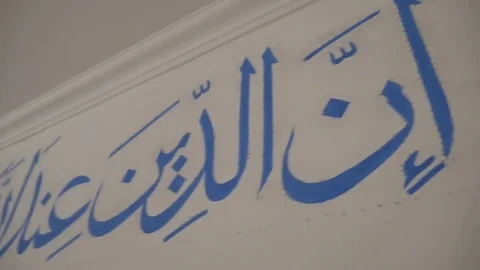 إِنَّ الدِّينَ عِندَ